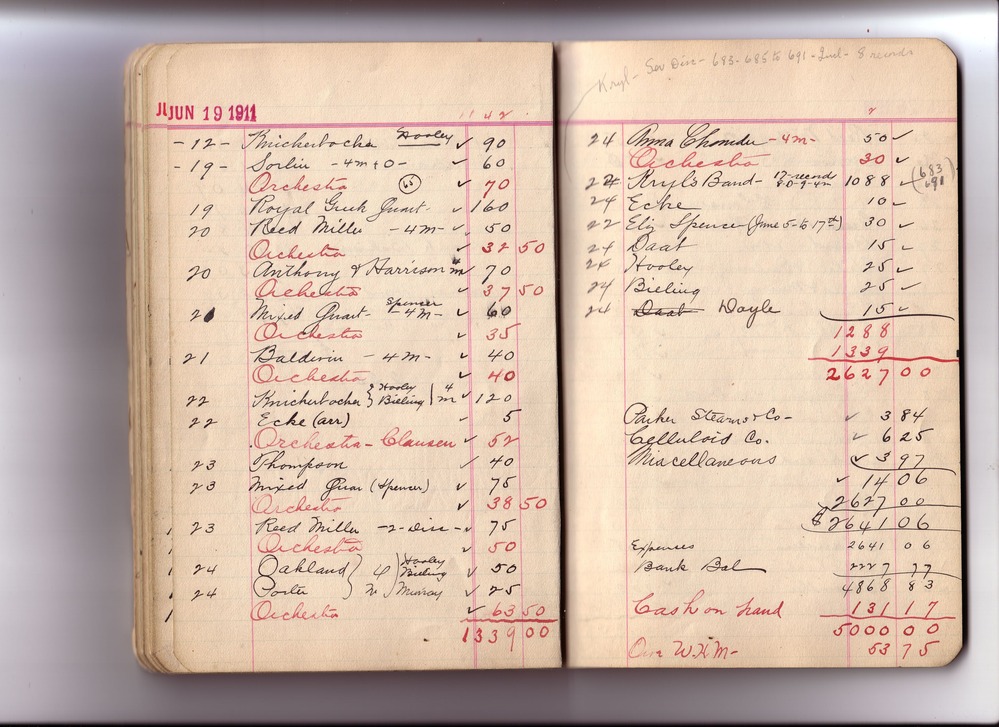 JUN 19 1911
" 4 2
- 12 - Knickerbocker Hooley ✓ 90
- 19 - Sorlin - 4m + O - ✓ 60
Orchestra (65) ✓ 70
19 Royal Greek Quart- ✓ 160
20 Reed Miller - 4m - ✓ 50
Orchestra ✓ 32 50
20 Anthony & Harrison m ✓ 70
Orchestra ✓ 37 50
21 Mixed Quart- Spencer - 4m - ✓ 60
Orchestra ✓ 35
21 Baldwin - 4m - ✓ 40
Orchestra ✓ 40
22 Knickerbocker } Hooley Bieling } 4 m ✓ 120
22 Ecke (arr) ✓ 5
Orchestra - Clausen ✓ 52
23 Thompson ✓ 40
23 Mixed Quar (Spencer) ✓ 75
Orchestra ✓ 38 50
23 Reed Miller - 2 - Disc - ✓ 75
Orchestra ✓ 50
24 Oakland } 4 } Hooley Bieling ✓ 50
24 Porter } m } Murray ✓ 25
Orchestra ✓ 63 50
1339 00
Kryl - Sev Disc - 683 - 685 to 691 - Incl - 8 records
24 Anna Chandler - 4m - 50 ✓
Orchestra 30 ✓
24 Kryl's Band - 17 records 1088 ✓ (683 691)
24 Ecke 10 ✓
22 Eliz Spencer (June 5 - to 17th) 30 ✓
24 Daab 15 ✓
24 Hooley 25 ✓
24 Bieling 25 ✓
24 Daab Doyle 15 ✓
1288
1339
2627 00
Parker Stearns & Co - ✓ 3 84
Celluloid Co. ✓ 6 25
Miscellaneous ✓ 3 97
✓ 14 06
2627 00
$ 2641 06
Expenses 2641 06
Bank Bal 2227 77
4868 83
Cash on hand 131 17
5000 00
Our W.H.M - 53 75